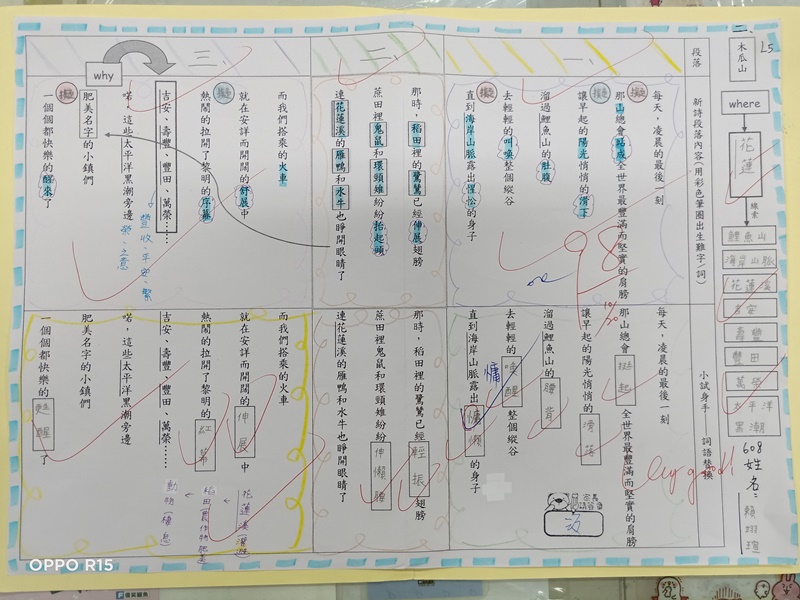 二、
木瓜山
L5
where
花蓮
線索
鯉魚山
海岸山脈
花蓮溪
吉安
壽豐
豐田
萬榮
太平洋
黑潮
608
姓名：
段落
新詩段落內容(用彩色筆圈出生難字/詞)
小試身手
詞語替換
一、
每天，凌晨的最後一刻
那山總會站成全世界最豐滿而堅實的肩膀
讓早起的陽光悄悄的滑下
溜過鯉魚山的肚腹
去輕輕的叫喚整個縱谷
直到海岸山脈露出惺忪的身子
98
10/20
二、
那時，稻田裡的鷺鷥已經伸展翅膀
蔗田裡鬼鼠和環頸雉紛紛抬起頭
連花蓮溪的雁鴨和水牛也睜開眼睛了
三、
而我們搭來的火車
就在安詳而開闊的舒展中
熱鬧的拉開了黎明的序幕
吉安、壽豐、豐田、萬榮……
喏，這些太平洋黑潮旁邊
肥美名字的小鎮們
一個個都快樂的醒來了
why
每天，凌晨的最後一刻
那山總會挺起全世界最豐滿而堅實的肩膀
讓早起的陽光悄悄的滑落
溜過鯉魚山的腰背
去輕輕的喚醒整個縱谷
直到海岸山脈露出慵懶的身子
慵
very good!
那時，稻田裡的鷺鷥已經輕振翅膀
蔗田裡鬼鼠和環頸雉紛紛伸懶腰
連花蓮溪的雁鴨和水牛也睜開眼睛了
而我們搭來的火車
就在安詳而開闊的伸展中
熱鬧的拉開了黎明的紅幕
吉安、壽豐、豐田、萬榮……
喏，這些太平洋黑潮旁邊
肥美名字的小鎮們
一個個都快樂的甦醒了
OPPO R15